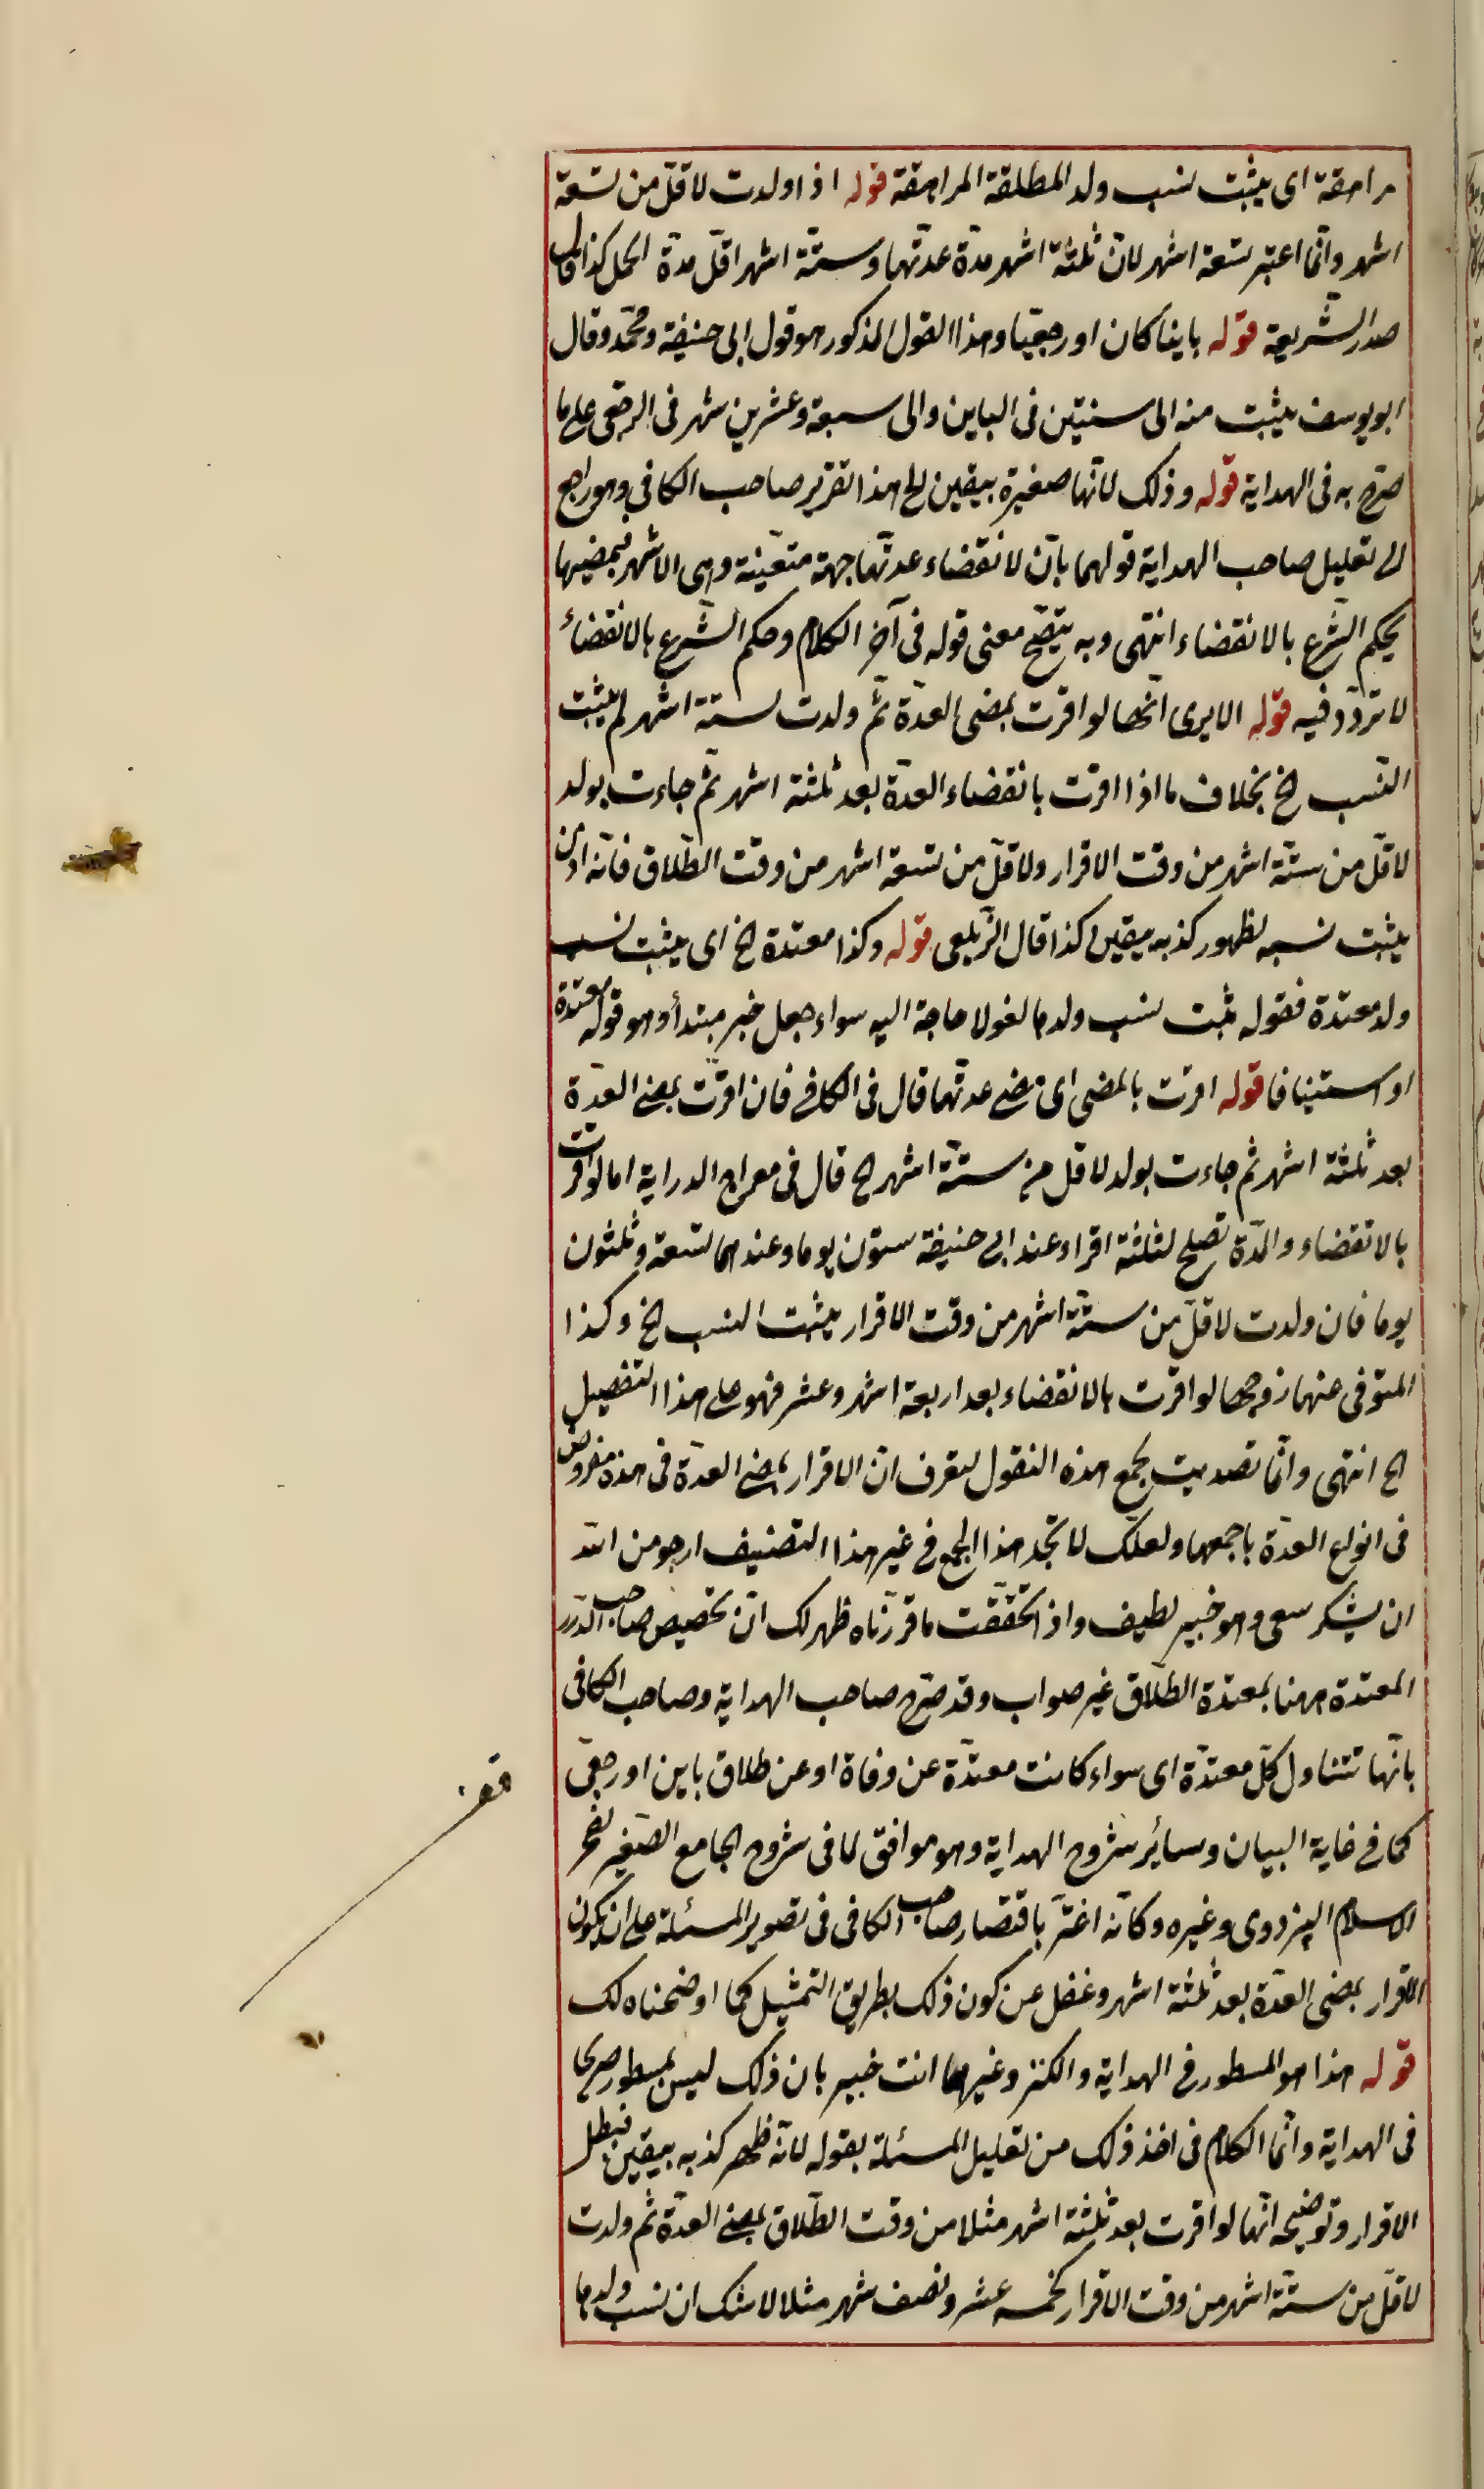 مراهقة اى يثبت نسب ولد المطلقة المراهقة قوله اذا ولدت لاقلّ من تسعة
اشهر وانّما اعتبر تسعة اشهر لانّ ثلثة اشهر مدّة عدّتها وستّة اشهر اقلّ مدّة الحمل كذا قال
صدر الشّريعة قوله باينا كان او رجعيّا وهذا القول المذكور هو قول ابى حنيفة ومحمّد وقال
ابو يوسف يثبت منه الى سنتين فى الباين والى سبعة وعشرين شهر فى الرجعى على ما
صرّح به فى الهداية قوله وذلك لانّها صغيرة بيقين الخ هذا تقرير صاحب الكافى وهو راجع
الى تعليل صاحب الهداية قولهما بانّ لانقضاء عدّتها جهة متعيّنة وهى الاشهر فبمضيها
يحكم الشّرع بالانقضاء انتهى وبه يتّضح معنى قوله فى آخر الكلام وحكم الشّرع بالانقضاء
لا تردّد فيه قوله الا يرى انّها لو اقرت بمضى العدّة ثمّ ولدت لستة اشهر لم يثبت
النّسب الخ بخلاف ما اذا اقرت بانقضاء العدّة بعد ثلثة اشهر ثمّ جاءت بولد
لاقلّ من ستّة اشهر من وقت الاقرار ولاقلّ من تسعة اشهر من وقت الطّلاق فانّه اذن
يثبت نسبه لظهور كذبه بيقين كذا قال الزّيلعى قوله وكذا معتدة الخ اى يثبت نسب
ولد معتدة فقوله يثبت نسب ولدها لغو لا حاجة اليه سواء جعل خبر مبتدأ وهو قوله معتدة
او استينافا قوله اقرت بالمضى اى بمضى عدتّها قال فى الكافى فان اقرّت بمضى العدّة
بعد ثلثة اشهر ثم جاءت بولد لاقل من ستّة اشهر الخ قال فى معراج الدراية اما لو اقرت
بالانقضاء والمدّة تصلح لثلثة اقراء وعند ابى حنيفة ستون يوما وعندهما تسعة وثلثون
يوما فان ولدت لاقلّ من ستّة اشهر من وقت الاقرار يثبت النسب الخ وكذا
المتوفى عنها زوجها لو اقرّت بالانقضاء بعد اربعة اشهر وعشر فهو على هذا التفصيل
الخ انتهى وانّما تصديت لجمع هذه النقول لتعرف انّ الاقرار بمضى العدّة فى هذه مفروض
فى انواع العدّة باجمعها ولعلّك لا تجد هذا الجمع فى غير هذا التصنيف ارجو من الله
ان يشكر سعى وهو خبير لطيف واذا تحقّقت ما قرّرناه ظهر لك انّ تخصيص صاحب الدّرر
المعتدة ههنا بمعتدّة الطّلاق غير صواب وقد صرّح صاحب الهداية وصاحب الكافى
بانّها تتناول كلّ معتدّة اى سواء كانت معتدّة عن وفاة او عن طلاق باين او رجعىّ
كما فى غاية البيان وسائر شروح الهداية وهو موافق لما فى شروح الجامع الصّغير لفخر
الاسلام البزدوى وغيره وكانّه اغترّ باقتصار صاحب الكافى فى تصوير المسئلة على ان يكون
الاقرار بمضى العدّة بعد ثلثة اشهر وغفل عن كون ذلك بطريق التمثيل كما اوضحناه لك
قوله هذا هو المسطور فى الهداية والكنز وغيرهما انت خبير بان ذلك ليس بمسطور صريحا
فى الهداية وانّما الكلام فى اخذ ذلك من تعليل المسئلة بقوله لانّه ظهر كذبه بيقين فبطل
الاقرار وتوضيحه انّها لو اقرت بعد ثلثة اشهر مثلا من وقت الطّلاق بمضى العدّة ثم ولدت
لاقلّ من ستّة اشهر من وقت الاقرار كخمسة عشر ونصف شهر مثلا لا شك ان نسب ولدها